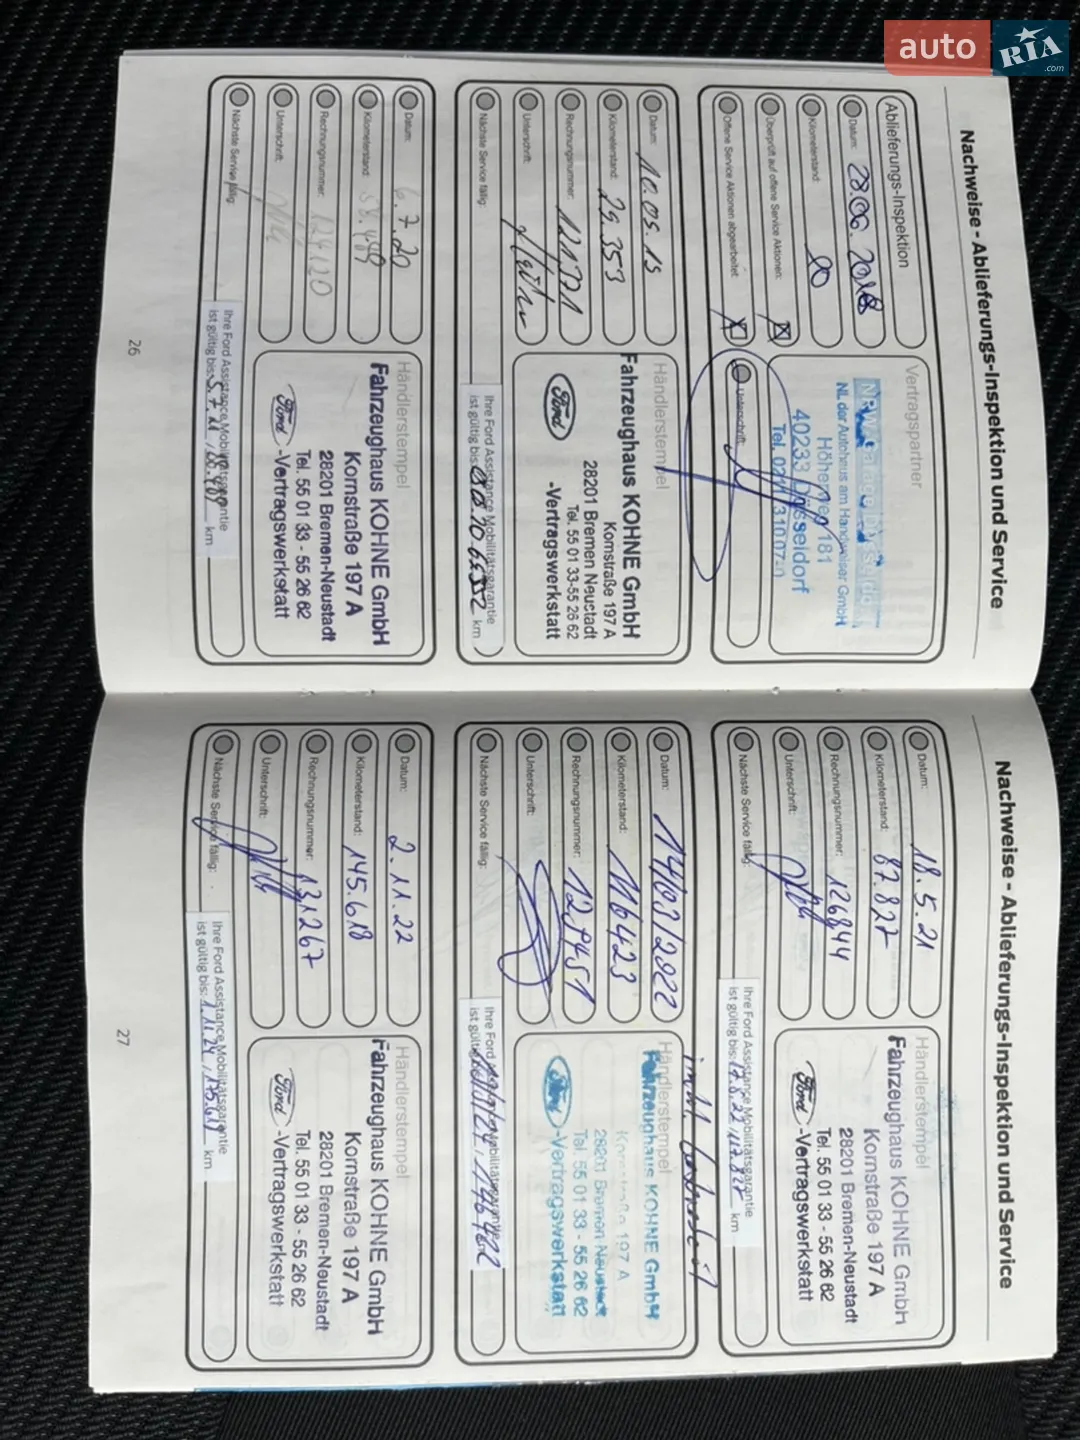 auto RIA.com
Nachweise - Ablieferungs-Inspektion und Service
Ablieferungs-Inspektion
Datum: 28.06.2018
Kilometerstand:
Überprüft auf offene Service Aktionen: X
Offene Service Aktionen abgearbeitet: X
Vertragspartner
NL der Autohaus am Handweiser GmbH
Höherweg 181
40233 Düsseldorf
Unterschrift:
Datum: 10.05.19
Kilometerstand: 29.353
Rechnungsnummer: 121771
Unterschrift:
Nächste Service fällig:
Händlerstempel
Fahrzeughaus KOHNE GmbH
Kornstraße 197 A
28201 Bremen Neustadt
Tel. 55 01 33-55 26 62
Ford
-Vertragswerkstatt
Ihre Ford Assistance Mobilitätsgarantie
ist gültig bis: km
Datum: 6.7.20
Kilometerstand: 58.499
Rechnungsnummer: 124120
Unterschrift:
Nächste Service fällig:
Händlerstempel
Fahrzeughaus KOHNE GmbH
Kornstraße 197 A
28201 Bremen-Neustadt
Tel. 55 01 33 - 55 26 62
Ford -Vertragswerkstatt
Ihre Ford Assistance Mobilitätsgarantie
ist gültig bis: 5.7.21 / km
26
Nachweise - Ablieferungs-Inspektion und Service
Datum: 18.5.21
Kilometerstand: 87.827
Rechnungsnummer: 126844
Unterschrift:
Nächste Service fällig:
Händlerstempel
Fahrzeughaus KOHNE GmbH
Kornstraße 197 A
28201 Bremen-Neustadt
Tel. 55 01 33 - 55 26 62
Ford -Vertragswerkstatt
Ihre Ford Assistance Mobilitätsgarantie
ist gültig bis: 17.5.22 / 117.827 km
Datum: 14/03/2022
Kilometerstand: 116423
Rechnungsnummer: 129451
Unterschrift:
Nächste Service fällig:
Händlerstempel
Fahrzeughaus KOHNE GmbH
Kornstraße 197 A
28201 Bremen Neustadt
Tel. 55 01 33 - 55 26 62
Ford -Vertragswerkstatt
Ihre Ford Mobilitätsgarantie
ist gültig
Datum: 2.11.22
Kilometerstand: 145.618
Rechnungsnummer: 131267
Unterschrift:
Nächste Service fällig:
Händlerstempel
Fahrzeughaus KOHNE GmbH
Kornstraße 197 A
28201 Bremen-Neustadt
Tel. 55 01 33 - 55 26 62
Ford -Vertragswerkstatt
Ihre Ford Assistance Mobilitätsgarantie
ist gültig bis: 1.11.24 / km
27